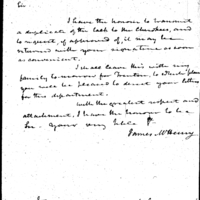 Sir
I have the honour to transmit
a duplicate of the talk to the Cherokees, and
to request, if approved of, it may be
returned with your signature as soon
as convenient.
I shall leave this with my
family tomorrow for Trenton, to which place
you will be pleased to direct your letters
for this department.
With the greatest respect and
attachment, I have the honour to be
Sir your very
James McHenry